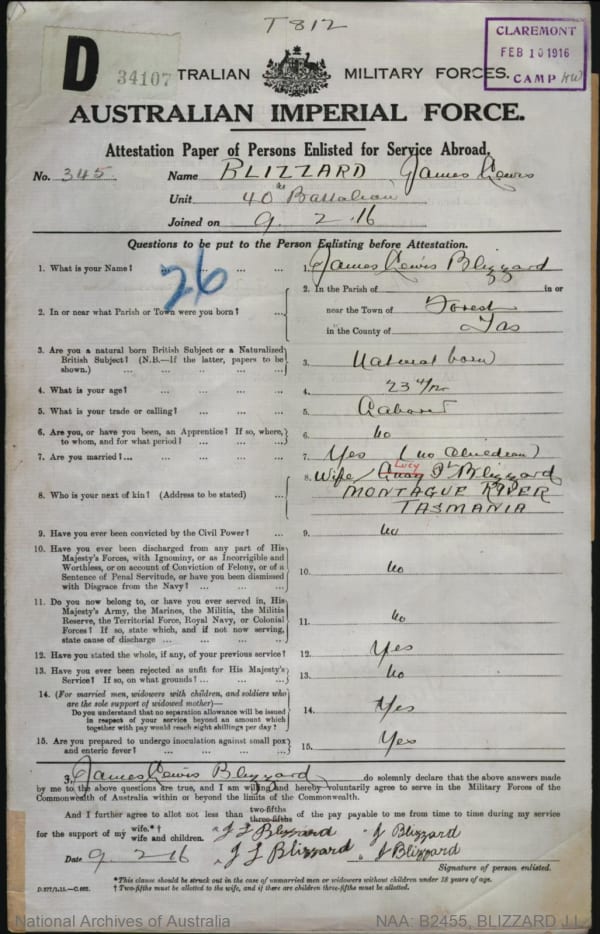 T812
CLAREMONT
FEB 10 1916
CAMP
D
34107
TRALIAN MILITARY FORCES.
AUSTRALIAN IMPERIAL FORCE.
Attestation Paper of Persons Enlisted for Service Abroad.
No. 345. Name BLIZZARD James Lewis
Unit 40th Battalion
Joined on 9. 2. 16
Questions to be put to the Person Enlisting before Attestation.
26
1. What is your Name? ... ... ... ... 1. James Lewis Blizzard
2. In or near what Parish or Town were you born? ... 2. In the Parish of in or
near the Town of Forest
in the County of Tas
3. Are you a natural born British Subject or a Naturalized
British Subject? (N.B.—If the latter, papers to be
shown.) ... ... ... ... ... 3. Natural born
4. What is your age? ... ... ... ... 4. 23 4/12
5. What is your trade or calling? ... ... ... 5. Laborer
6. Are you, or have you been, an Apprentice? If so, where,
to whom, and for what period? ... ... ... 6. No
7. Are you married? ... ... ... ... 7. Yes (no children)
8. Who is your next of kin? (Address to be stated) ... 8. Wife / Lucy Blizzard
MONTAGUE RIVER
TASMANIA
9. Have you ever been convicted by the Civil Power? ... 9. No
10. Have you ever been discharged from any part of His
Majesty's Forces, with Ignominy, or as Incorrigible and
Worthless, or on account of Conviction of Felony, or of a
Sentence of Penal Servitude, or have you been dismissed
with Disgrace from the Navy? ... ... ... 10. No
11. Do you now belong to, or have you ever served in, His
Majesty's Army, the Marines, the Militia, the Militia
Reserve, the Territorial Force, Royal Navy, or Colonial
Forces? If so, state which, and if not now serving,
state cause of discharge ... ... ... ... 11. No
12. Have you stated the whole, if any, of your previous service? 12. Yes
13. Have you ever been rejected as unfit for His Majesty's
Service? If so, on what grounds? ... ... ... 13. No
14. (For married men, widowers with children, and soldiers who
are the sole support of widowed mother)—
Do you understand that no separation allowance will be issued
in respect of your service beyond an amount which
together with pay would reach eight shillings per day? 14. Yes
15. Are you prepared to undergo inoculation against small pox
and enteric fever? ... ... ... ... 15. Yes
I, James Lewis Blizzard do solemnly declare that the above answers made
by me to the above questions are true, and I am willing and hereby voluntarily agree to serve in the Military Forces of the
Commonwealth of Australia within or beyond the limits of the Commonwealth.
And I further agree to allot not less than two-fifths three-fifths of the pay payable to me from time to time during my service
for the support of my wife.*† wife and children. J L Blizzard J Blizzard
Date 9 2 16 J L Blizzard J Blizzard
Signature of person enlisted.
*This clause should be struck out in the case of unmarried men or widowers without children under 18 years of age.
† Two-fifths must be allotted to the wife, and if there are children three-fifths must be allotted.
National Archives of Australia NAA: B2455, BLIZZARD J L